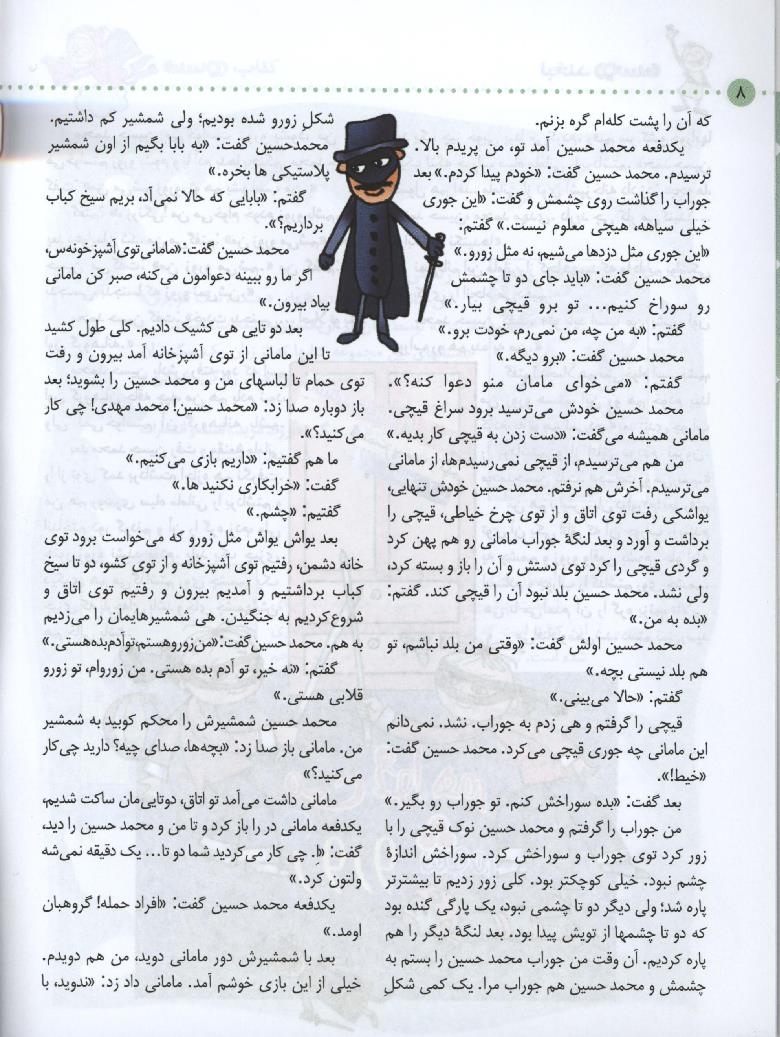 ۸
که آن را پشت کله‌ام گره بزنم.
یکدفعه محمد حسین آمد تو، من پریدم بالا.
ترسیدم. محمد حسین گفت: «خودم پیدا کردم.» بعد
جوراب را گذاشت روی چشمش و گفت: «این جوری
خیلی سیاهه، هیچی معلوم نیست.» گفتم:
«این جوری مثل دزدها می‌شیم، نه مثل زورو.»
محمد حسین گفت: «باید جای دو تا چشمش
رو سوراخ کنیم... تو برو قیچی بیار.»
گفتم: «به من چه، من نمی‌رم، خودت برو.»
محمد حسین گفت: «برو دیگه.»
گفتم: «می‌خوای مامان منو دعوا کنه؟».
محمد حسین خودش می‌ترسید برود سراغ قیچی.
مامانی همیشه می‌گفت: «دست زدن به قیچی کار بدیه.»
من هم می‌ترسیدم، از قیچی نمی‌رسیدم‌ها، از مامانی
می‌ترسیدم. آخرش هم نرفتم. محمد حسین خودش تنهایی،
یواشکی رفت توی اتاق و از توی چرخ خیاطی، قیچی را
برداشت و آورد و بعد لنگهٔ جوراب مامانی رو هم پهن کرد
و گردی قیچی را کرد توی دستش و آن را باز و بسته کرد،
ولی نشد. محمد حسین بلد نبود آن را قیچی کند. گفتم:
«بده به من.»
محمد حسین اولش گفت: «وقتی من بلد نباشم، تو
هم بلد نیستی بچه.»
گفتم: «حالا می‌بینی.»
قیچی را گرفتم و هی زدم به جوراب. نشد. نمی‌دانم
این مامانی چه جوری قیچی می‌کرد. محمد حسین گفت:
«خیط!».
بعد گفت: «بده سوراخش کنم. تو جوراب رو بگیر.»
من جوراب را گرفتم و محمد حسین نوک قیچی را با
زور کرد توی جوراب و سوراخش کرد. سوراخش اندازهٔ
چشم نبود. خیلی کوچکتر بود. کلی زور زدیم تا بیشترتر
پاره شد؛ ولی دیگر دو تا چشمی نبود، یک پارگی گنده بود
که دو تا چشمها از تویش پیدا بود. بعد لنگهٔ دیگر را هم
پاره کردیم. آن وقت من جوراب محمد حسین را بستم به
چشمش و محمد حسین هم جوراب مرا. یک کمی شکلِ
شکلِ زورو شده بودیم؛ ولی شمشیر کم داشتیم.
محمدحسین گفت: «به بابا بگیم از اون شمشیر
پلاستیکی ها بخره.»
گفتم: «بابایی که حالا نمی‌آد، بریم سیخ کباب
برداریم؟».
محمد حسین گفت:«مامانی توی آشپزخونه‌س،
اگر ما رو ببینه دعوامون می‌کنه، صبر کن مامانی
بیاد بیرون.»
بعد دو تایی هی کشیک دادیم. کلی طول کشید
تا این مامانی از توی آشپزخانه آمد بیرون و رفت
توی حمام تا لباسهای من و محمد حسین را بشوید؛ بعد
باز دوباره صدا زد: «محمد حسین! محمد مهدی! چی کار
می‌کنید؟».
ما هم گفتیم: «داریم بازی می‌کنیم.»
گفت: «خرابکاری نکنید ها.»
گفتیم: «چشم.»
بعد یواش یواش مثل زورو که می‌خواست برود توی
خانه دشمن، رفتیم توی آشپزخانه و از توی کشو، دو تا سیخ
کباب برداشتیم و آمدیم بیرون و رفتیم توی اتاق و
شروع‌کردیم به جنگیدن. هی شمشیرهایمان را می‌زدیم
به هم. محمد حسین گفت: «من زورو هستم، تو آدم بده هستی.»
گفتم: «نه خیر، تو آدم بده هستی. من زوروام، تو زورو
قلابی هستی.»
محمد حسین شمشیرش را محکم کوبید به شمشیر
من. مامانی باز صدا زد: «بچه‌ها، صدای چیه؟ دارید چی‌کار
می‌کنید؟»
مامانی داشت می‌آمد تو اتاق، دوتایی‌مان ساکت شدیم،
یکدفعه مامانی در را باز کرد و تا من و محمد حسین را دید،
گفت: «اِ. چی کار می‌کردید شما دو تا... یک دقیقه نمی‌شه
ولتون کرد.»
یکدفعه محمد حسین گفت: «افراد حمله! گروهبان
اومد.»
بعد با شمشیرش دور مامانی دوید، من هم دویدم.
خیلی از این بازی خوشم آمد. مامانی داد زد: «ندوید، با